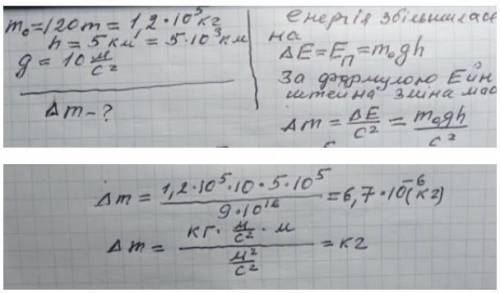 m₀=120m=1,2·10⁵кг
h=5км=5·10³км
g=10 м/с²
Δm-?
енергія збільшилас
на
ΔE=Eп=m₀gh
За формулою Ейн
штейна зміна мас
Δm = ΔE/c² = m₀gh/c²
Δm = 1,2·10⁵·10·5·10⁵/9·10¹⁶ = 6,7·10⁻⁶(кг)
Δm = кг·м/с²·м / м²/с² = кг